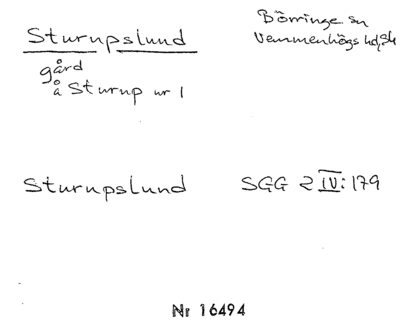 Sturupslund
Börringe sn
Vemmenhögs hd, Sk
gård
å Sturup nr 1
Sturupslund
SGG 2 IV: 179
Nr 16494